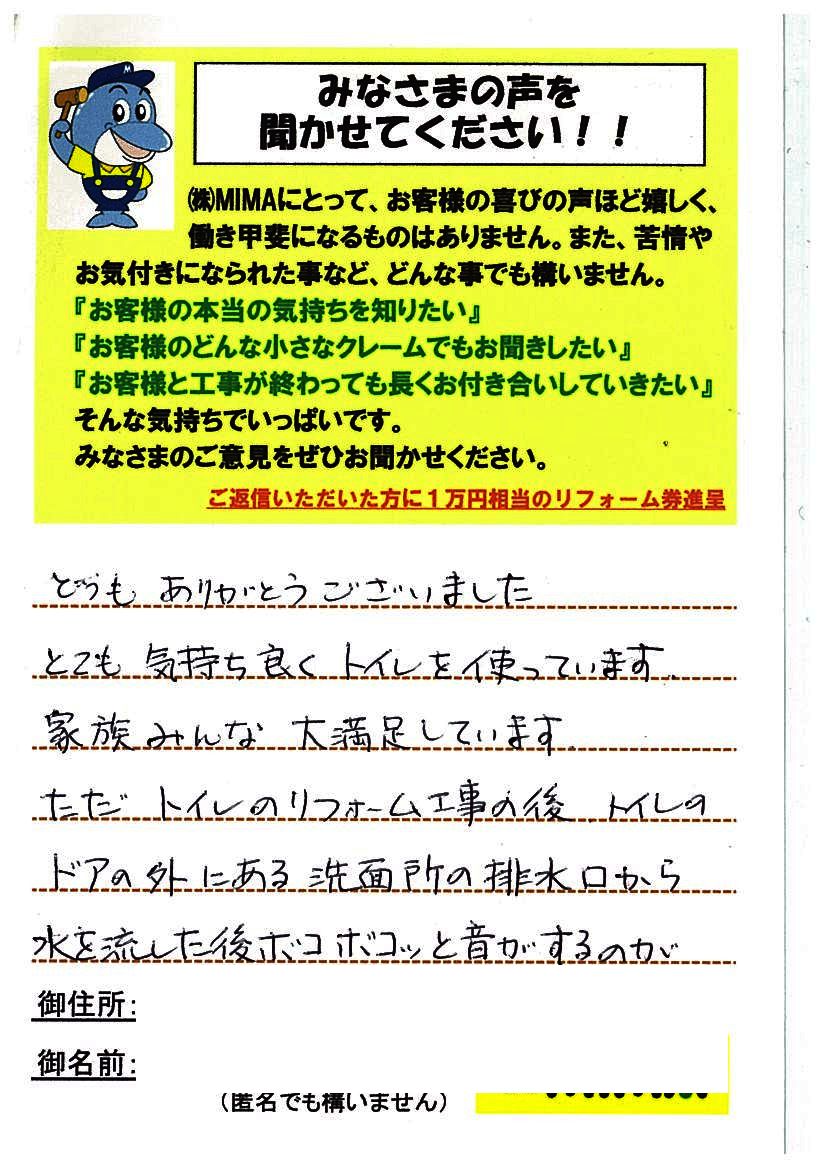 みなさまの声を
聞かせてください！！
M
㈱MIMAにとって、お客様の喜びの声ほど嬉しく、
働き甲斐になるものはありません。また、苦情や
お気付きになられた事など、どんな事でも構いません。
『お客様の本当の気持ちを知りたい』
『お客様のどんな小さなクレームでもお聞きしたい』
『お客様と工事が終わっても長くお付き合いしていきたい』
そんな気持ちでいっぱいです。
みなさまのご意見をぜひお聞かせください。
ご返信いただいた方に１万円相当のリフォーム券進呈
どうも ありがとうございました
とても 気持ち良く トイレを使っています.
家族みんな 大満足しています.
ただ トイレのリフォーム工事の後、トイレの
ドアの外にある洗面所の排水口から
水を流した後ボコボコッと音がするのが
御住所：
御名前：
（匿名でも構いません）